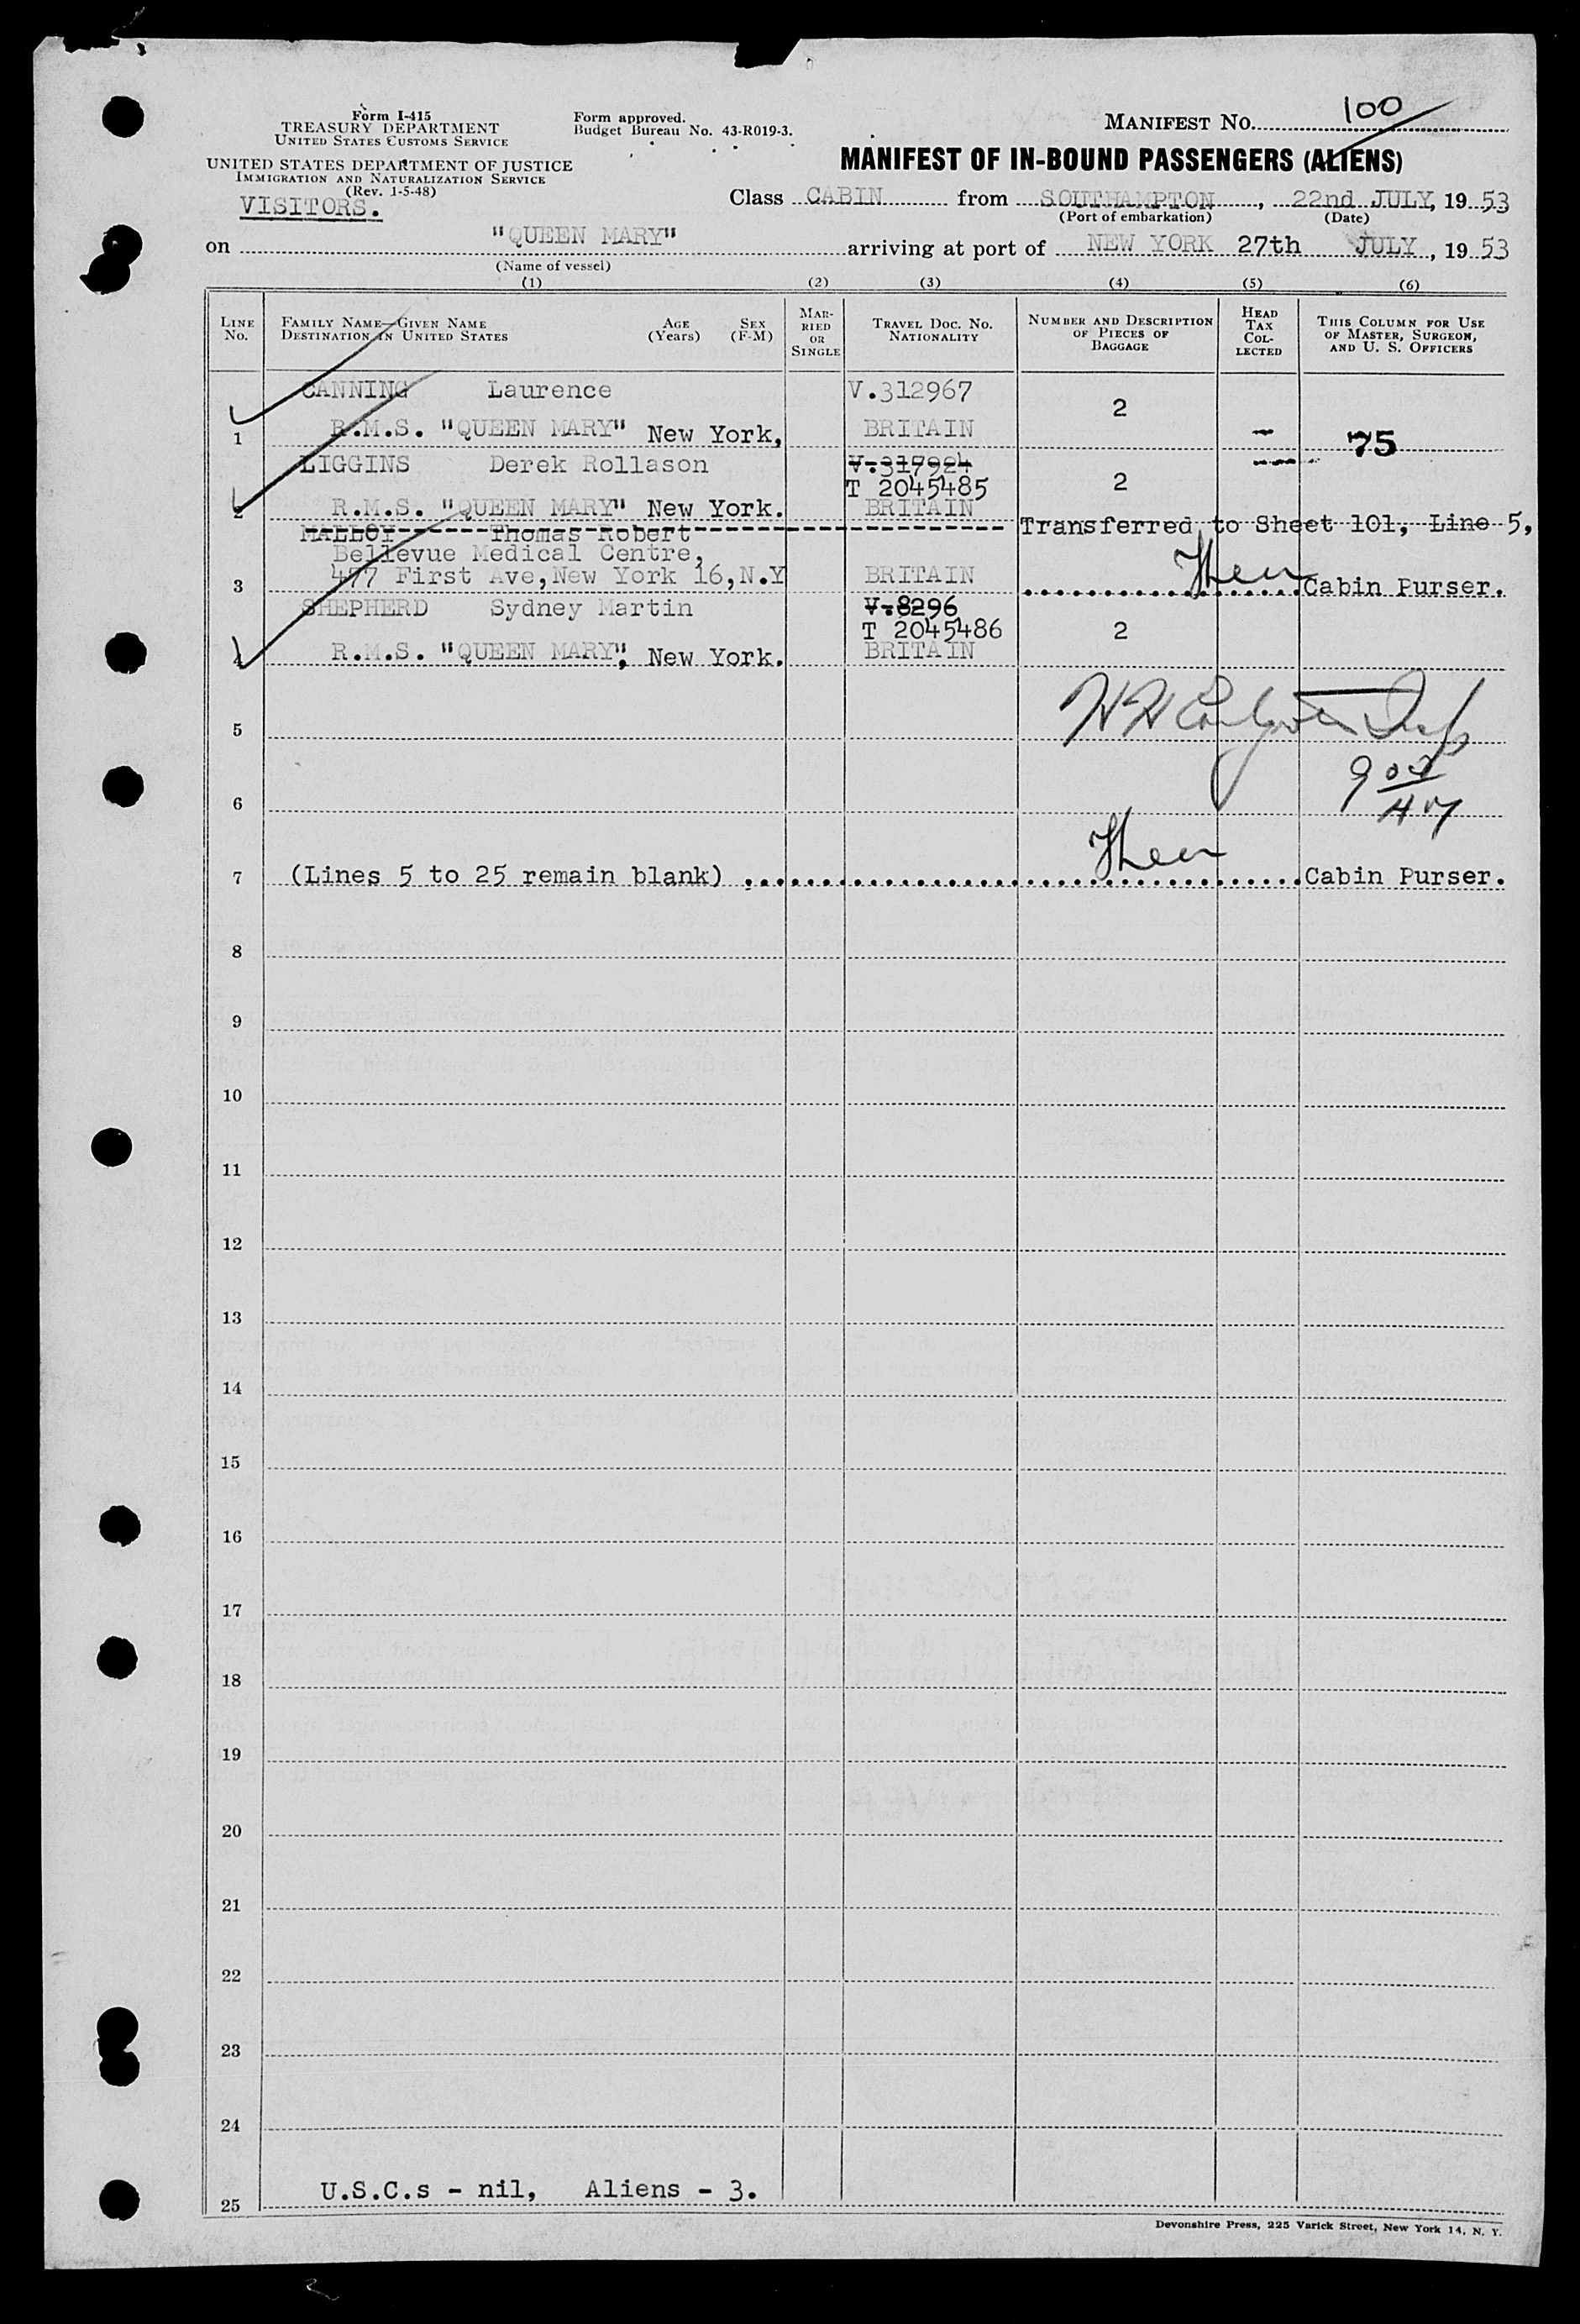 Form I-415
TREASURY DEPARTMENT
UNITED STATES CUSTOMS SERVICE
UNITED STATES DEPARTMENT OF JUSTICE
IMMIGRATION AND NATURALIZATION SERVICE
(Rev. 1-5-48)
VISITORS.
Form approved.
Budget Bureau No. 43-R019-3.
MANIFEST NO. 100
MANIFEST OF IN-BOUND PASSENGERS (ALIENS)
Class CABIN from SOUTHAMPTON, 22nd JULY, 19 53
(Port of embarkation) (Date)
on "QUEEN MARY" arriving at port of NEW YORK 27th JULY, 19 53
(Name of vessel)
(1) (2) (3) (4) (5) (6)
LINE No.
FAMILY NAME—GIVEN NAME
DESTINATION IN UNITED STATES
AGE (Years)
SEX (F-M)
MARRIED OR SINGLE
TRAVEL DOC. NO. NATIONALITY
NUMBER AND DESCRIPTION OF PIECES OF BAGGAGE
HEAD TAX COLLECTED
THIS COLUMN FOR USE OF MASTER, SURGEON, AND U. S. OFFICERS
CANNING Laurence V.312967 2
1 R.M.S. "QUEEN MARY" New York, BRITAIN — 75
LIGGINS Derek Rollason V.317924
T 2045485 2
2 R.M.S. "QUEEN MARY" New York. BRITAIN
MALLOY Thomas Robert Transferred to Sheet 101, Line 5,
Bellevue Medical Centre,
3 477 First Ave, New York 16, N.Y BRITAIN Cabin Purser.
SHEPHERD Sydney Martin V.8296
T 2045486 2
4 R.M.S. "QUEEN MARY", New York. BRITAIN
5
6
7 (Lines 5 to 25 remain blank) Cabin Purser.
8
9
10
11
12
13
14
15
16
17
18
19
20
21
22
23
24
25 U.S.C.s - nil, Aliens - 3.
Devonshire Press, 225 Varick Street, New York 14, N. Y.